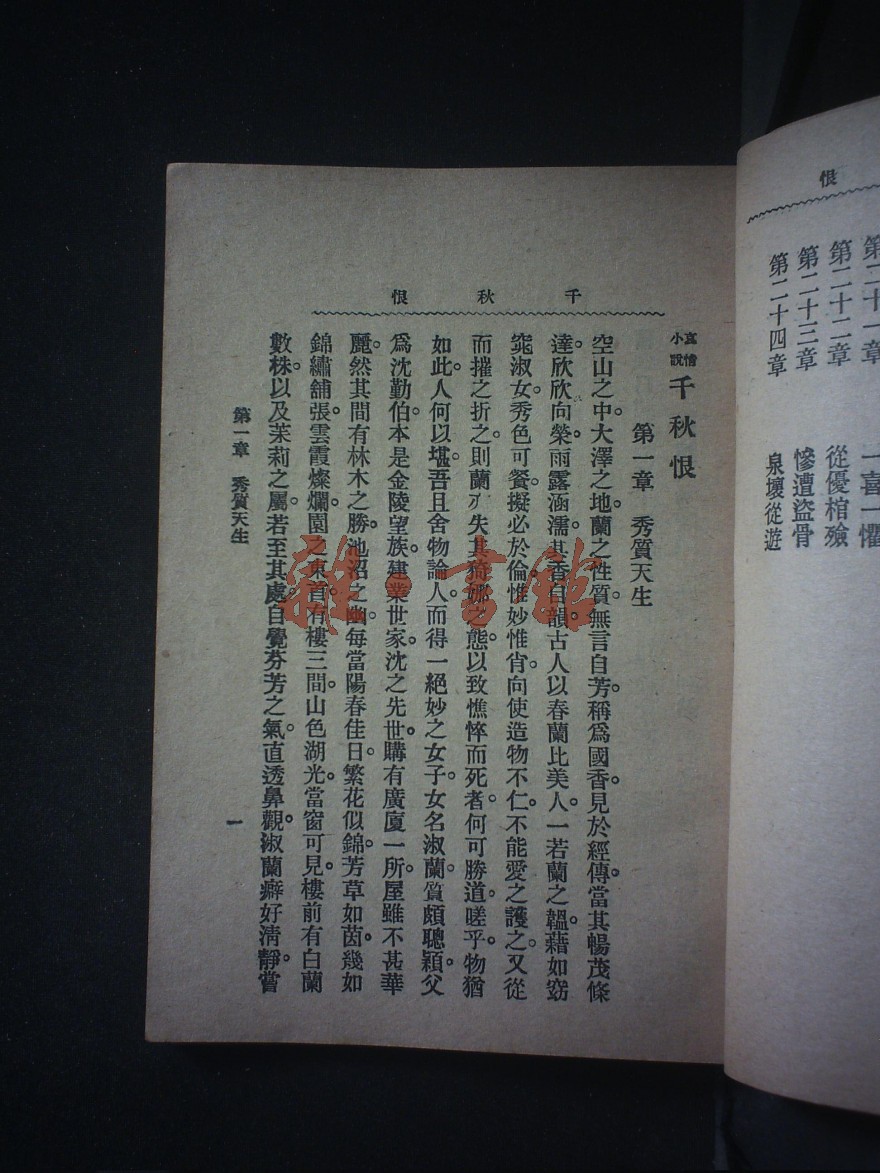 恨
第二十一章　一喜一懼
第二十二章　從優棺殮
第二十三章　慘遭盜骨
第二十四章　泉壤從遊
千秋恨
哀情小說　千秋恨
第一章　秀質天生
空山之中。大澤之地。蘭之性質。無言自芳。稱爲國香。見於經傳。當其暢茂條
達。欣欣向榮。雨露涵濡。其香白韻。古人以春蘭比美人。一若蘭之韞藉。如窈
窕淑女。秀色可餐。擬必於倫。惟妙惟肖。向使造物不仁。不能愛之護之。又從
而摧之折之。則蘭亦失其猗娜之態。以致憔悴而死者。何可勝道。嗟乎。物猶
如此。人何以堪。吾且舍物論人。而得一絕妙之女子。女名淑蘭。質頗聰穎。父
爲沈勤伯。本是金陵望族。建業世家。沈之先世。購有廣廈一所。屋雖不甚華
麗。然其間有林木之勝。池沼之幽。每當陽春佳日。繁花似錦。芳草如茵。幾如
錦繡舖張。雲霞燦爛。園之東首。有樓三間。山色湖光。當窗可見。樓前有白蘭
數株。以及茉莉之屬。若至其處。自覺芬芳之氣。直透鼻觀。淑蘭癖好淸靜。嘗
第一章　秀質天生
一
雜·書館